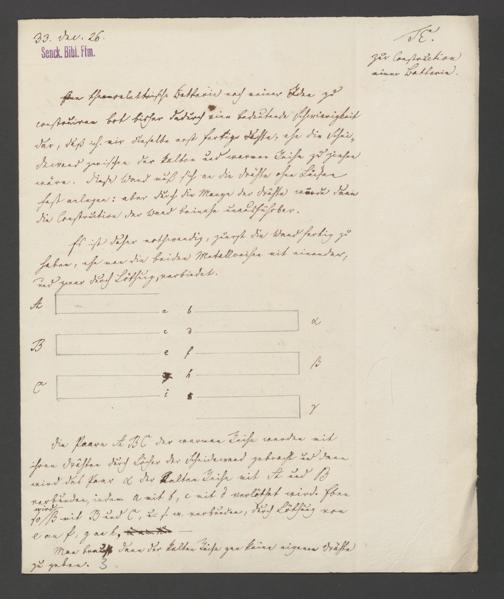 33. Dec. 26.
Senck. Bibl. Ffm.
Tr.
zur Construktion
einer Batterie.
Eine thermoelektrische Batterie nach meiner Idee zu
construiren bot bisher dadurch eine bedeutende Schwierigkeit
dar, daß ich mir dieselbe erst fertig dachte, ehe die Schei-
dewand zwischen der kalten und warmen Seite zu ziehen
wäre. Diese Wand muß sich an die Drähte ohne Lücken
fest anlegen; aber durch die Menge der Drähte würde dann
die Construktion der Wand beinahe unausführbar.
Es ist daher nothwendig, zuerst die Wand fertig zu
haben, ehe man die beiden Metallreihen mit einander,
und zwar durch Löthung, verbindet.
A
a b
α
B
c d
e f
β
C
g h
i
γ
Die Paare A B C der warmen Seite werden mit
ihren Drähten durch Löcher der Scheidewand gebracht und dann
wird das Paar α der kalten Seite mit A und B
verbunden, indem a mit b, c mit d verlöthet wird. Eben
so wird β mit B und C, verbunden, durch Löthung von
e an f, g an h,
Man braucht dann der kalten Seite gar keine eigenen Drähte
zu geben. 3